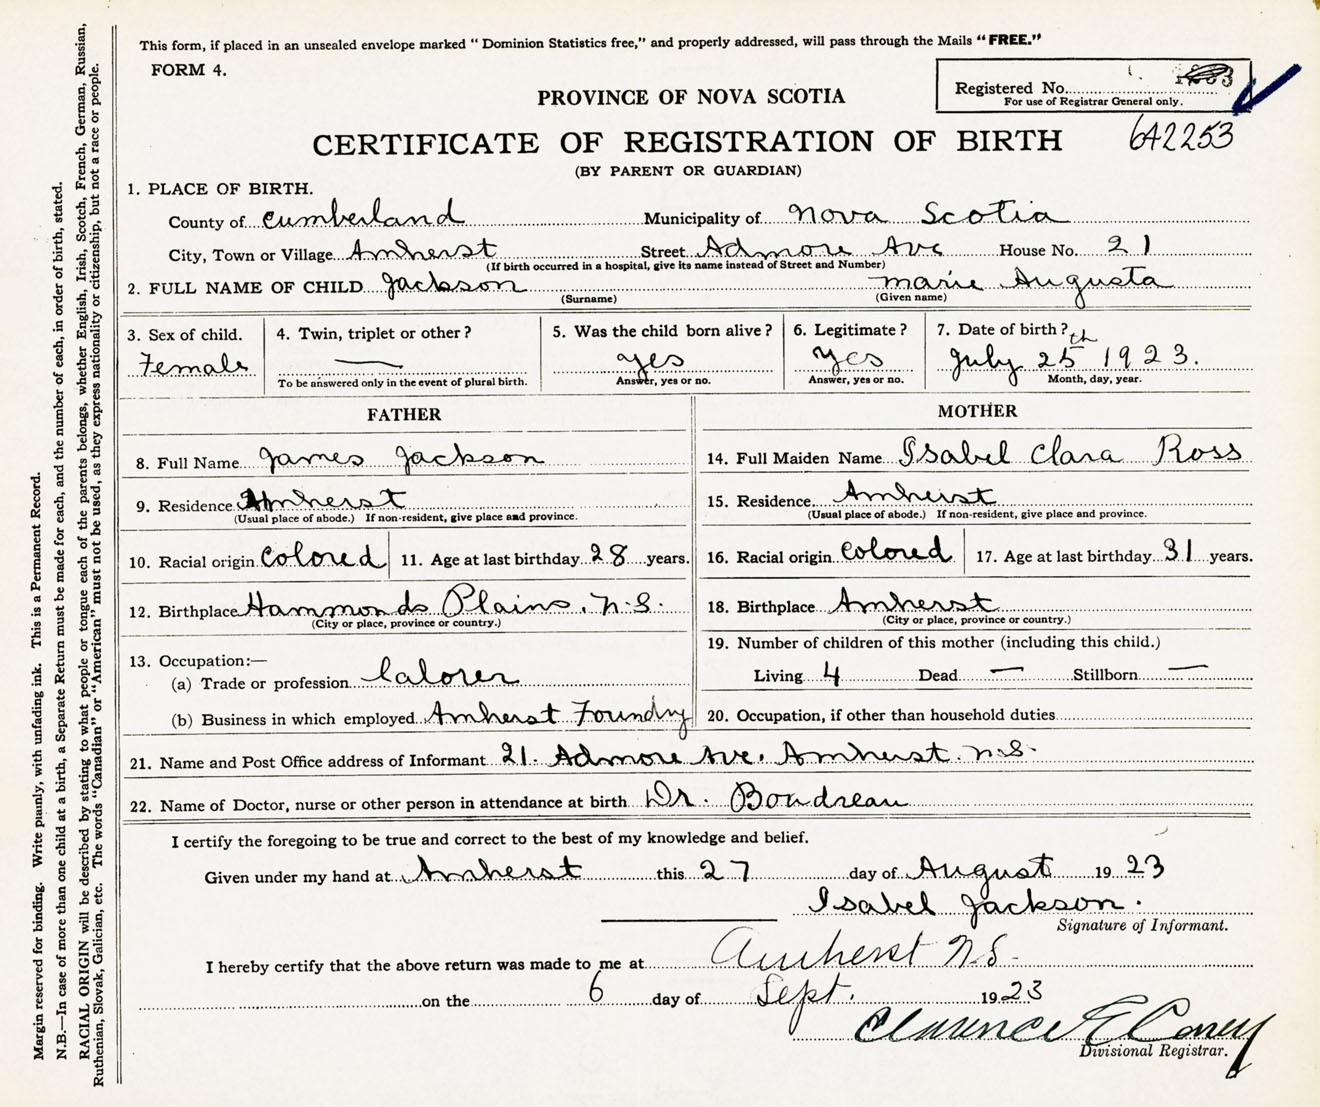 This form, if placed in an unsealed envelope marked "Dominion Statistics free," and properly addressed, will pass through the Mails "FREE."
FORM 4.
Registered No.
For use of Registrar General only.
PROVINCE OF NOVA SCOTIA
CERTIFICATE OF REGISTRATION OF BIRTH 642253
(BY PARENT OR GUARDIAN)
1. PLACE OF BIRTH.
County of Cumberland Municipality of Nova Scotia
City, Town or Village Amherst Street Admore Ave House No. 21
(If birth occurred in a hospital, give its name instead of Street and Number)
2. FULL NAME OF CHILD Jackson Marie Augusta
(Surname) (Given name)
3. Sex of child. 4. Twin, triplet or other? 5. Was the child born alive? 6. Legitimate? 7. Date of birth?
Female — yes yes July 25th 1923.
To be answered only in the event of plural birth. Answer, yes or no. Answer, yes or no. Month, day, year.
FATHER MOTHER
8. Full Name James Jackson 14. Full Maiden Name Isabel Clara Ross
9. Residence Amherst 15. Residence Amherst
(Usual place of abode.) If non-resident, give place and province. (Usual place of abode.) If non-resident, give place and province.
10. Racial origin Colored 11. Age at last birthday 28 years. 16. Racial origin Colored 17. Age at last birthday 31 years.
12. Birthplace Hammonds Plains, N.S. 18. Birthplace Amherst
(City or place, province or country.) (City or place, province or country.)
19. Number of children of this mother (including this child.)
13. Occupation:—
(a) Trade or profession laborer Living 4 Dead — Stillborn —
(b) Business in which employed Amherst Foundry 20. Occupation, if other than household duties
21. Name and Post Office address of Informant 21. Admore Ave. Amherst. N.S.
22. Name of Doctor, nurse or other person in attendance at birth Dr. Boudreau
I certify the foregoing to be true and correct to the best of my knowledge and belief.
Given under my hand at Amherst this 27 day of August 1923
Isabel Jackson.
Signature of Informant.
I hereby certify that the above return was made to me at Amherst N.S.
on the 6 day of Sept. 1923
Clarence E Casey
Divisional Registrar.
Margin reserved for binding. Write plainly, with unfading ink. This is a Permanent Record.
N.B.—In case of more than one child at a birth, a Separate Return must be made for each, and the number of each, in order of birth, stated.
RACIAL ORIGIN will be described by stating to what people or tongue each of the parents belongs, whether English, Irish, Scotch, French, German, Russian,
Ruthenian, Slovak, Galician, etc. The words "Canadian" or "American" must not be used, as they express nationality or citizenship, but not a race or people.